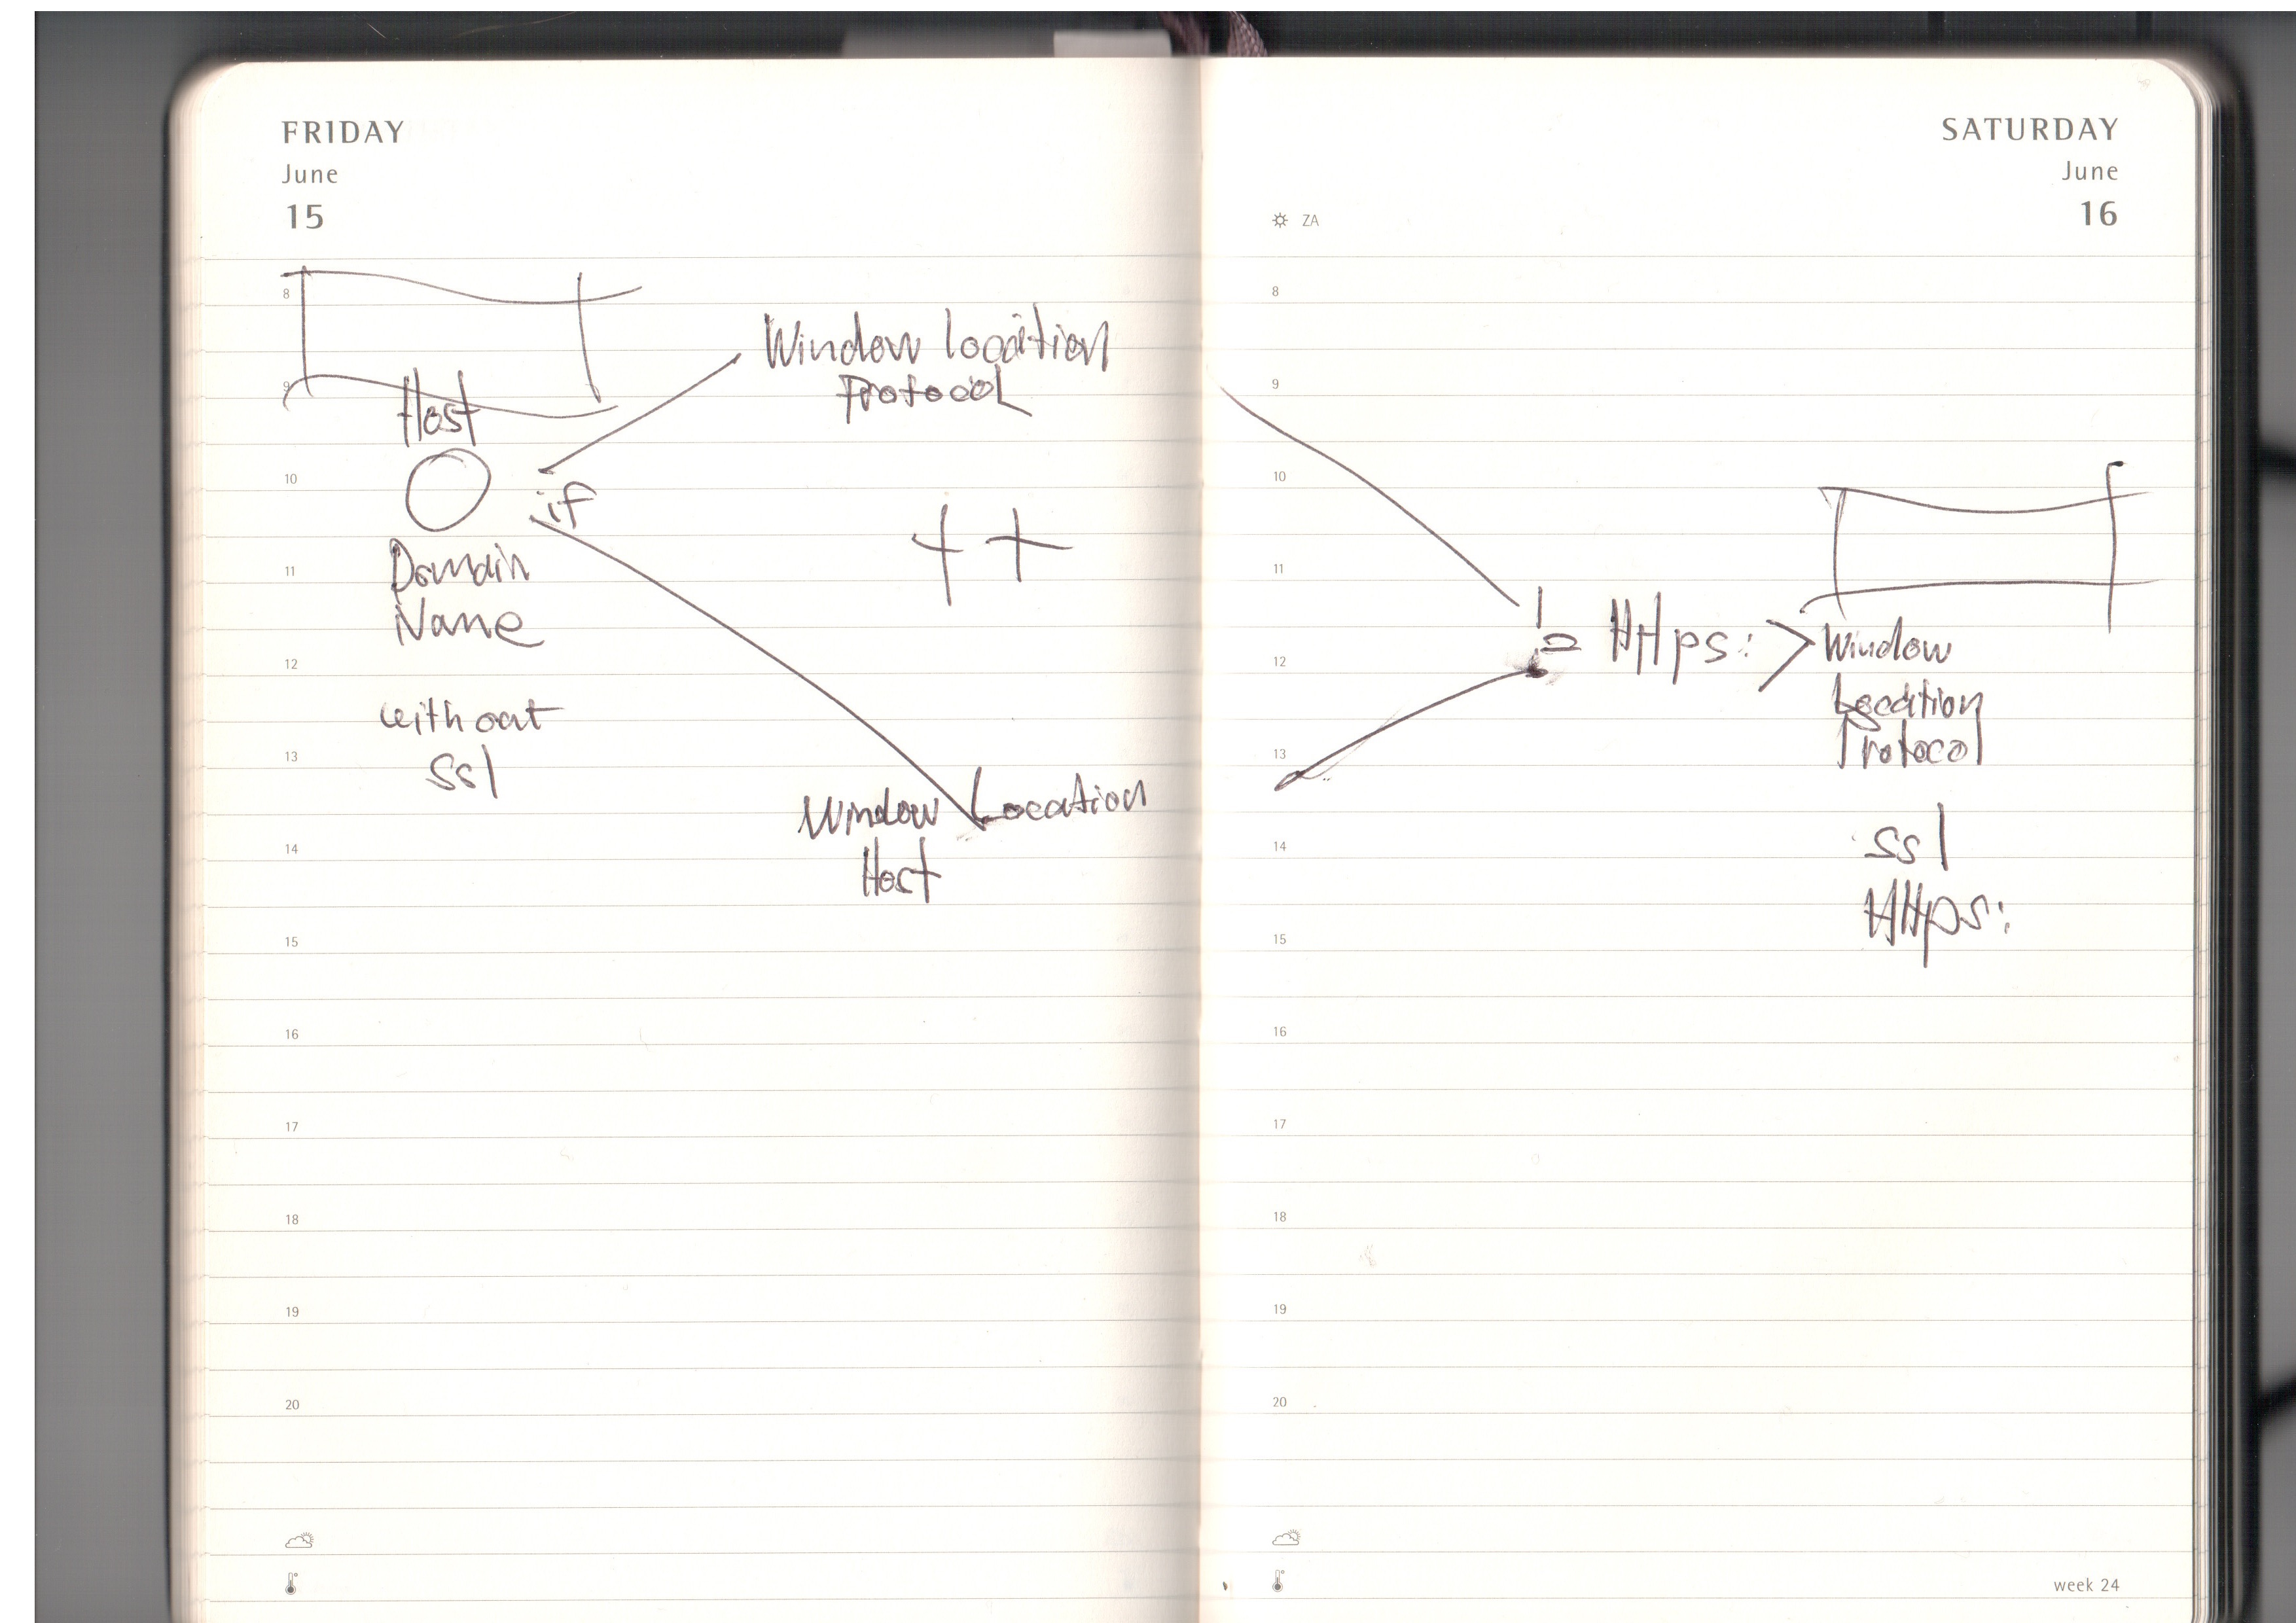 FRIDAY
June
15
8
9
10
11
12
13
14
15
16
17
18
19
20
Host
if
Domain
Name
without
ssl
Window location
Protocol
++
Window Location
Host
SATURDAY
June
16
ZA
8
9
10
11
12
13
14
15
16
17
18
19
20
!= Https: > Window
Location
Protocol
ssl
Https:
week 24